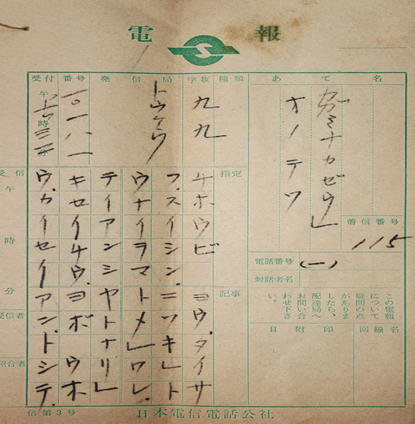 電報
受付 番号 発信局 字数 種類
あて名
午
時
トウケウ 九九
カガミナカゼウ」
オノテツ
着信番号
115
電話番号 (一)
対話者名
指定
記事
チホウビ ヨウ.タイサ
フ.スイシン.ニツキ」ト
ウナイヲマトメ」ワレ.
テイアンシヤトナリ」
キセイチウ.ヨボ ウホ
ウ.カイセイアン.トシテ
受信
午
時
分
受信者
照合者
この電報
について
疑問の点
がありま
したら、
配達局へ
お問い合
わせ下さ
い。
日附印
回線名
信第3号
日本電信電話公社